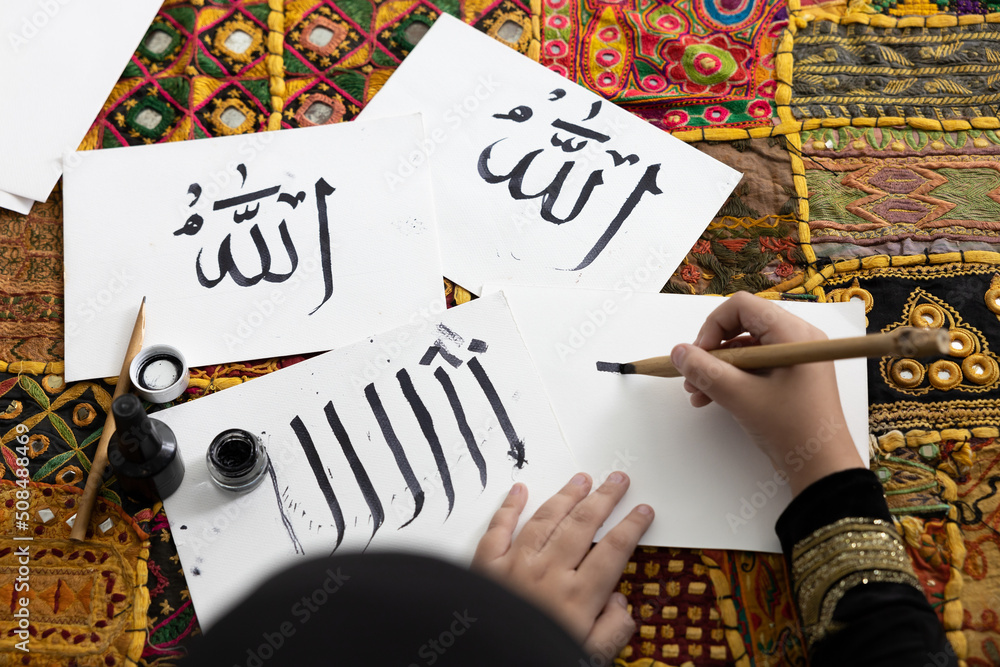 الله
الله
Adobe Stock | #508488469